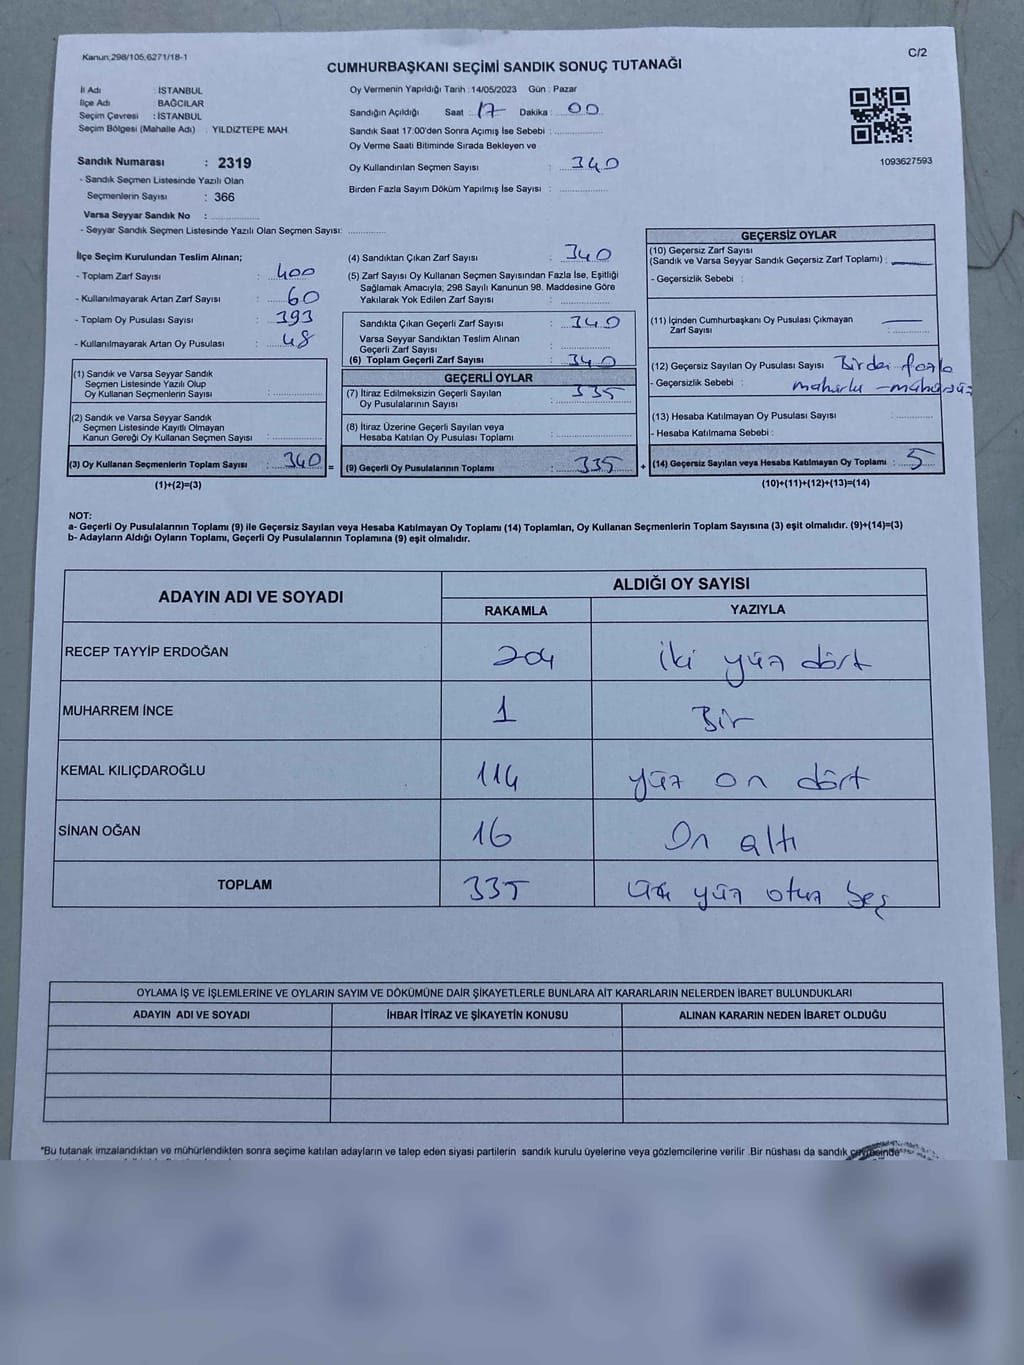 Kanun:298/105,6271/18-1
C/2
CUMHURBAŞKANI SEÇİMİ SANDIK SONUÇ TUTANAĞI
İl Adı : İSTANBUL
İlçe Adı : BAĞCILAR
Seçim Çevresi : İSTANBUL
Seçim Bölgesi (Mahalle Adı) : YILDIZTEPE MAH.
Sandık Numarası : 2319
- Sandık Seçmen Listesinde Yazılı Olan
Seçmenlerin Sayısı : 366
Varsa Seyyar Sandık No :
- Seyyar Sandık Seçmen Listesinde Yazılı Olan Seçmen Sayısı:
Oy Vermenin Yapıldığı Tarih : 14/05/2023 Gün : Pazar
Sandığın Açıldığı Saat : 17 Dakika : 00
Sandık Saat 17:00'den Sonra Açımış İse Sebebi :
Oy Verme Saati Bitiminde Sırada Bekleyen ve
Oy Kullandırılan Seçmen Sayısı : 340
Birden Fazla Sayım Döküm Yapılmış İse Sayısı :
1093627593
İlçe Seçim Kurulundan Teslim Alınan;
- Toplam Zarf Sayısı : 400
- Kullanılmayarak Artan Zarf Sayısı : 60
- Toplam Oy Pusulası Sayısı : 393
- Kullanılmayarak Artan Oy Pusulası : 48
(1) Sandık ve Varsa Seyyar Sandık
Seçmen Listesinde Yazılı Olup
Oy Kullanan Seçmenlerin Sayısı :
(2) Sandık ve Varsa Seyyar Sandık
Seçmen Listesinde Kayıtlı Olmayan
Kanun Gereği Oy Kullanan Seçmen Sayısı :
(3) Oy Kullanan Seçmenlerin Toplam Sayısı : 340 =
(1)+(2)=(3)
(4) Sandıktan Çıkan Zarf Sayısı : 340
(5) Zarf Sayısı Oy Kullanan Seçmen Sayısından Fazla İse, Eşitliği
Sağlamak Amacıyla; 298 Sayılı Kanunun 98. Maddesine Göre
Yakılarak Yok Edilen Zarf Sayısı :
Sandıkta Çıkan Geçerli Zarf Sayısı : 340
Varsa Seyyar Sandıktan Teslim Alınan
Geçerli Zarf Sayısı :
(6) Toplam Geçerli Zarf Sayısı : 340
GEÇERLİ OYLAR
(7) İtiraz Edilmeksizin Geçerli Sayılan
Oy Pusulalarının Sayısı : 335
(8) İtiraz Üzerine Geçerli Sayılan veya
Hesaba Katılan Oy Pusulası Toplamı :
(9) Geçerli Oy Pusulalarının Toplamı : 335 +
GEÇERSİZ OYLAR
(10) Geçersiz Zarf Sayısı
(Sandık ve Varsa Seyyar Sandık Geçersiz Zarf Toplamı) :
- Geçersizlik Sebebi :
(11) İçinden Cumhurbaşkanı Oy Pusulası Çıkmayan
Zarf Sayısı :
(12) Geçersiz Sayılan Oy Pusulası Sayısı : Birden fazla
- Geçersizlik Sebebi : mühürlü - mühürsüz
(13) Hesaba Katılmayan Oy Pusulası Sayısı :
- Hesaba Katılmama Sebebi :
(14) Geçersiz Sayılan veya Hesaba Katılmayan Oy Toplamı : 5
(10)+(11)+(12)+(13)=(14)
NOT:
a- Geçerli Oy Pusulalarının Toplamı (9) ile Geçersiz Sayılan veya Hesaba Katılmayan Oy Toplamı (14) Toplamları, Oy Kullanan Seçmenlerin Toplam Sayısına (3) eşit olmalıdır. (9)+(14)=(3)
b- Adayların Aldığı Oyların Toplamı, Geçerli Oy Pusulalarının Toplamına (9) eşit olmalıdır.
ADAYIN ADI VE SOYADI
ALDIĞI OY SAYISI
RAKAMLA YAZIYLA
RECEP TAYYİP ERDOĞAN 204 iki yüz dört
MUHARREM İNCE 1 Bir
KEMAL KILIÇDAROĞLU 114 yüz on dört
SİNAN OĞAN 16 On altı
TOPLAM 335 üç yüz otuz beş
OYLAMA İŞ VE İŞLEMLERİNE VE OYLARIN SAYIM VE DÖKÜMÜNE DAİR ŞİKAYETLERLE BUNLARA AİT KARARLARIN NELERDEN İBARET BULUNDUKLARI
ADAYIN ADI VE SOYADI İHBAR İTİRAZ VE ŞİKAYETİN KONUSU ALINAN KARARIN NEDEN İBARET OLDUĞU
*Bu tutanak imzalandıktan ve mühürlendikten sonra seçime katılan adayların ve talep eden siyasi partilerin sandık kurulu üyelerine veya gözlemcilerine verilir .Bir nüshası da sandık çevresinde